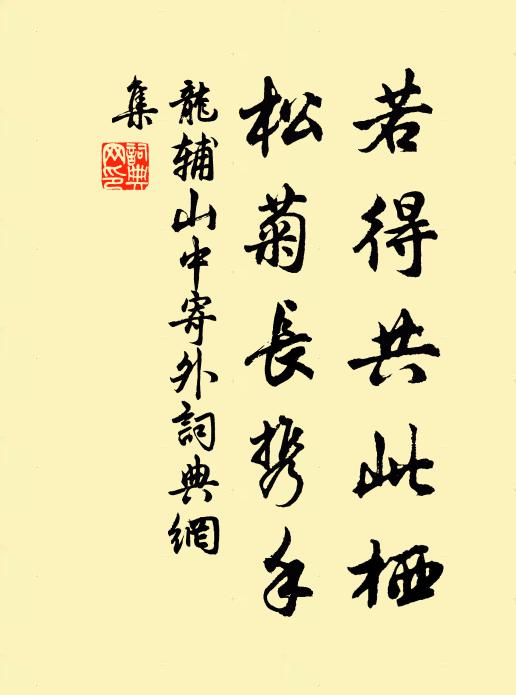 若得共此栖
松菊長携手
龍輔山中寄外詞典網
集
詞典網印